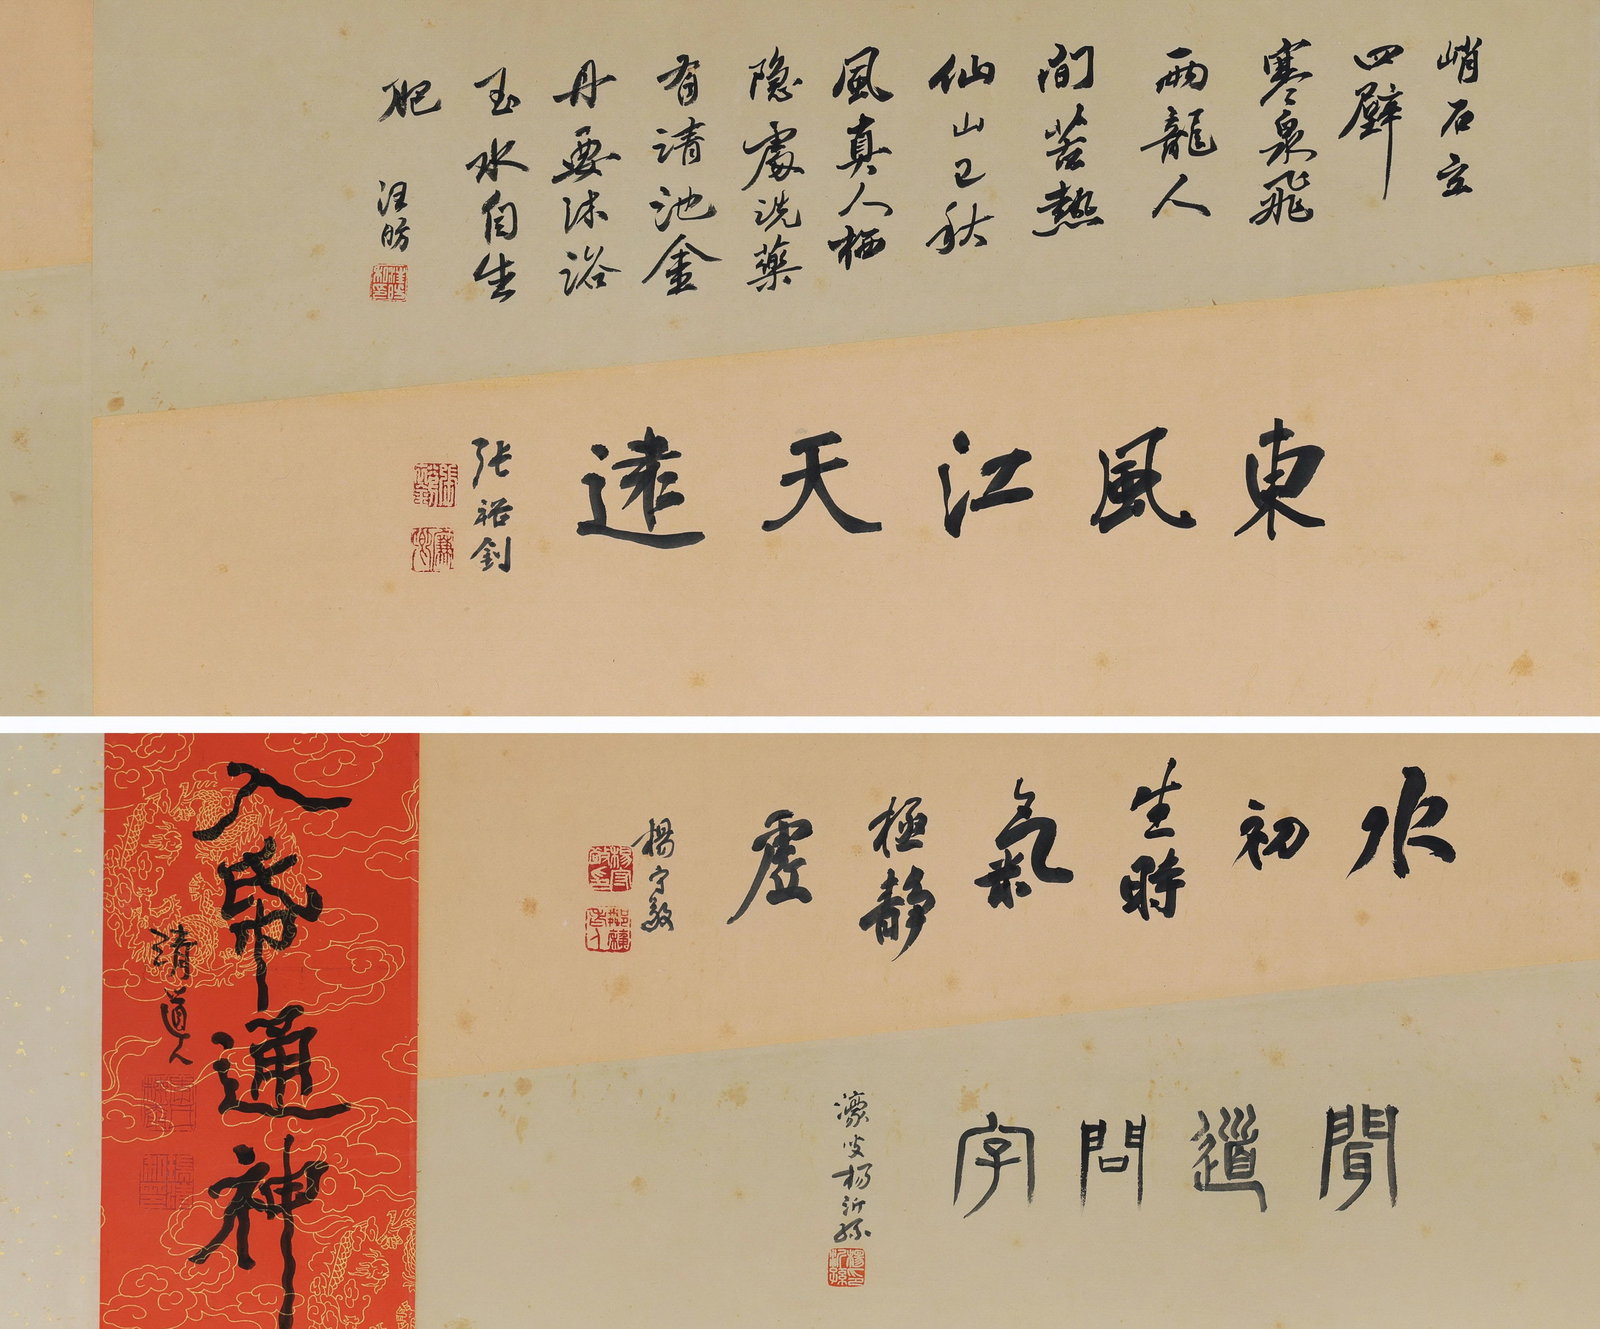 峭石立
四壁
寒泉飛
兩龍人
間苦熱
仙山已秋
風真人栖
隐處洗藥
有清池金
丹要沐浴
玉水自生
肥
汪昉
東風江天遠
張裕釗
水初生時氣極静虛
楊守敬
聞道問字
濠叟楊沂孫
楊沂孫
入帋通神
清道人